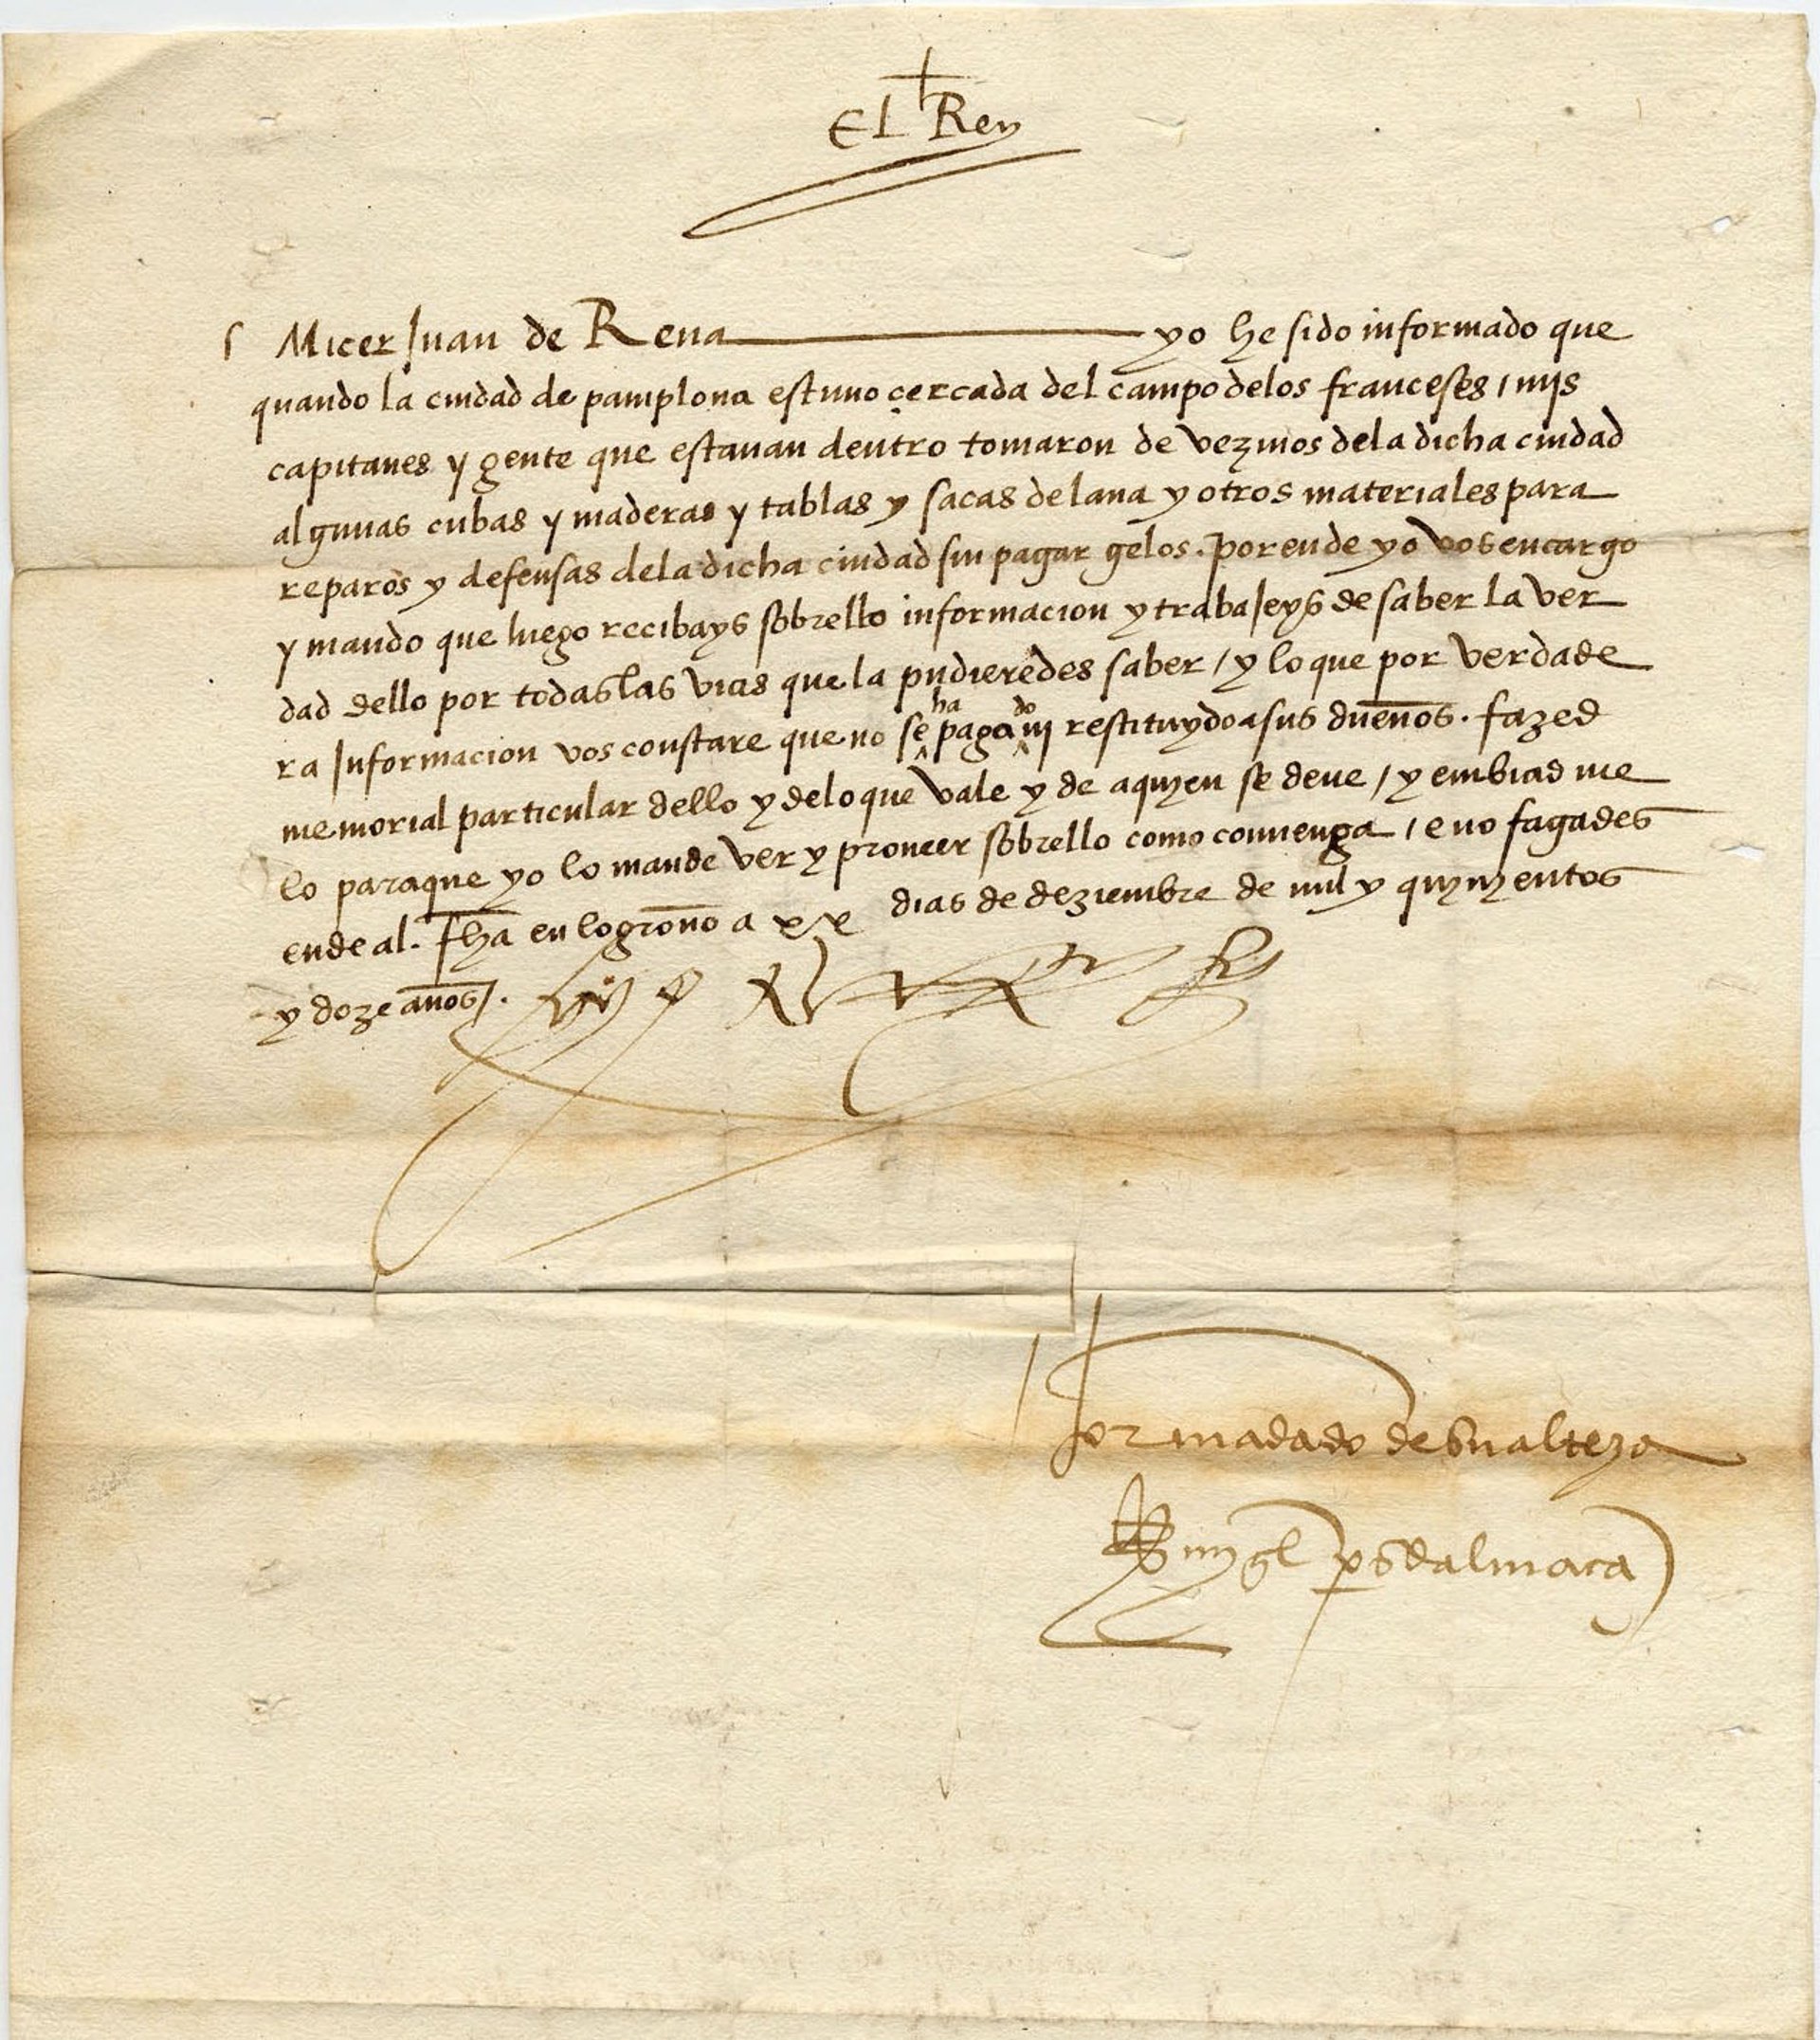 El Rey
Micer Juan de Rena yo he sido informado que
quando la ciudad de pamplona estuuo çercada del campo delos franceses / mjs
capitanes y gente que estauan dentro tomaron de vezinos dela dicha ciudad
algunas cubas y maderas y tablas y sacas de lana y otros materiales para
reparos y defensas dela dicha ciudad sin pagar gelos. Por ende yo vos encargo
y mando que luego recibays sobrello informacion y trabajeys de saber la ver
dad dello por todas las vias que la pudieredes saber / y lo que por verdade
ra Informacion vos constare que no se ha pagado nj restituydo a sus dueños. fazed
memorial particular dello y delo que vale y de aquyen se deue / y embiad me
lo paraque yo lo mande ver y proueer sobrello como conuenga / e no fagades
ende al. fha en logroño a xx dias de deziembre de mil y qujnjentos
y doze años /.
yo el Rey
Por madado de su alteza
pºs dalmaça